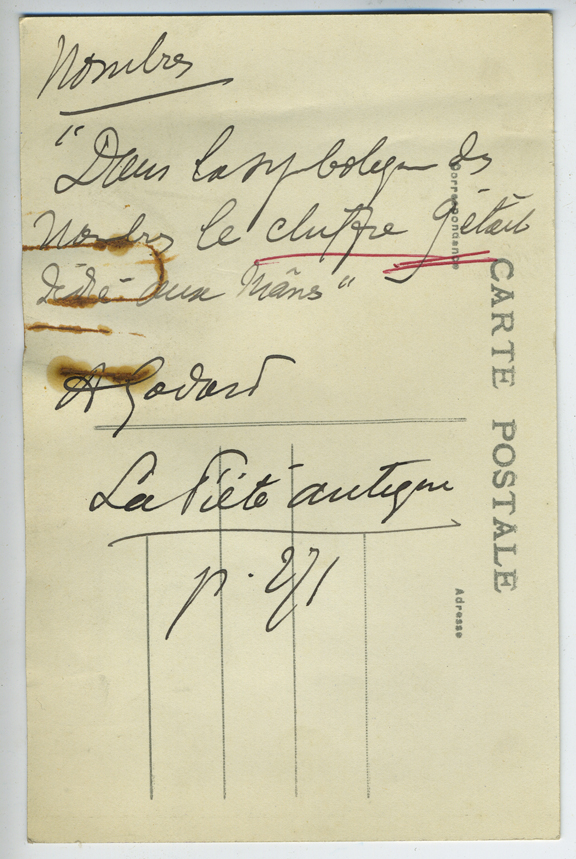 Nombres
"Dans la symbolique des
Nombres le chiffre 9 était
dédié aux Mânes"
A Godard
La Piété antique
p. 271
CARTE POSTALE
Correspondance
Adresse